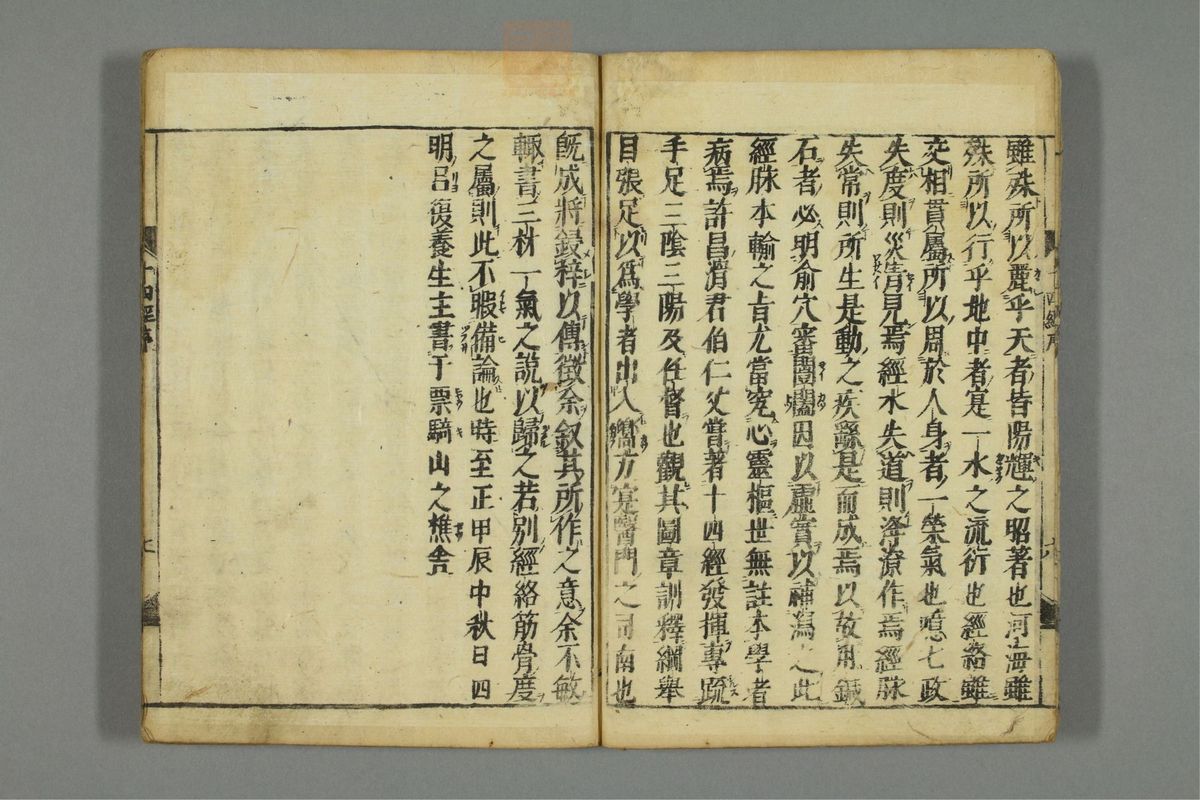 雖殊所以麗乎天者皆陽輝之昭著也河海雖
殊所以行乎地中者寔一水之流衍也經絡雖
交相貫屬所以周於人身者一榮氣也噫七政
失度則災眚見焉經水失道則洚潦作焉經脉
失常則所生是動之疾繇是而成焉以故用鍼
石者必明俞穴審闓闔因以虛實以補瀉之此
經脉本輸之旨尤當究心靈樞世無註本學者
病焉許昌滑君伯仁父嘗著十四經發揮專疏
手足三陰三陽及任督也觀其圖章訓釋綱舉
目張足以爲學者出入嚮方寔醫門之司南也
既成將鋟梓以傳徵余叙其所作之意余不敏
輙書三材一氣之說以歸之若別經絡筋骨度
之屬則此不暇備論也時至正甲辰中秋日四
明呂復養生主書于票騎山之樵舍